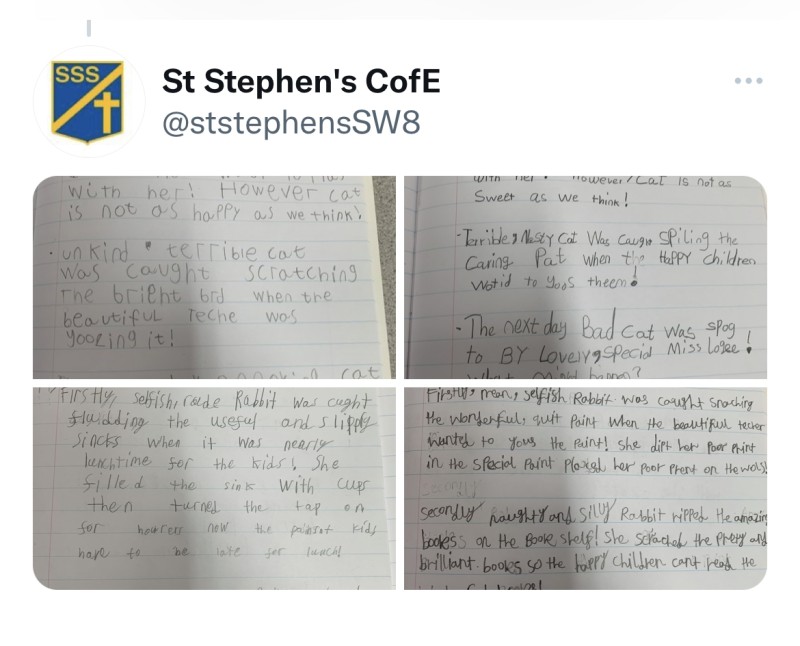 SSS
St Stephen's CofE
@ststephensSW8
with her! However cat
is not as happy as we think!
unkind terrible cat
was caught scratching
The brieht brd when the
beautiful teche was
yoozing it!
cat
with her! However, Cat is not as
Sweet as we think!
- Terrible, Nasty Cat Was Caugre Spiling the
Caring Pat when the HAPPY children
Wotid to yoos theem!
- The next day Bad cat Was Spog
to BY Lovely, special Miss Logee!
Firstly, selfish, roude Rabbit was cught
fluidding the useful and slippy
Sincks when it was nearly
lunchtime for the kids! She
filled the sink with cups
then turned the tap on
for hourers now the painsot kids
have to be late for lunch!
Firstly, mean, selfish Rabbit was caught snaching
the wonderful, quit Paint when the beautiful techer
wanted to yous the Paint! She dipt her Poor Print
in the special Paint her Poor Prent on the wols!
secondly naughty and silly Rabbit ripped the amazin
books on the Book shelf! She the Pretty and
brilliant books so the happy children can't read the